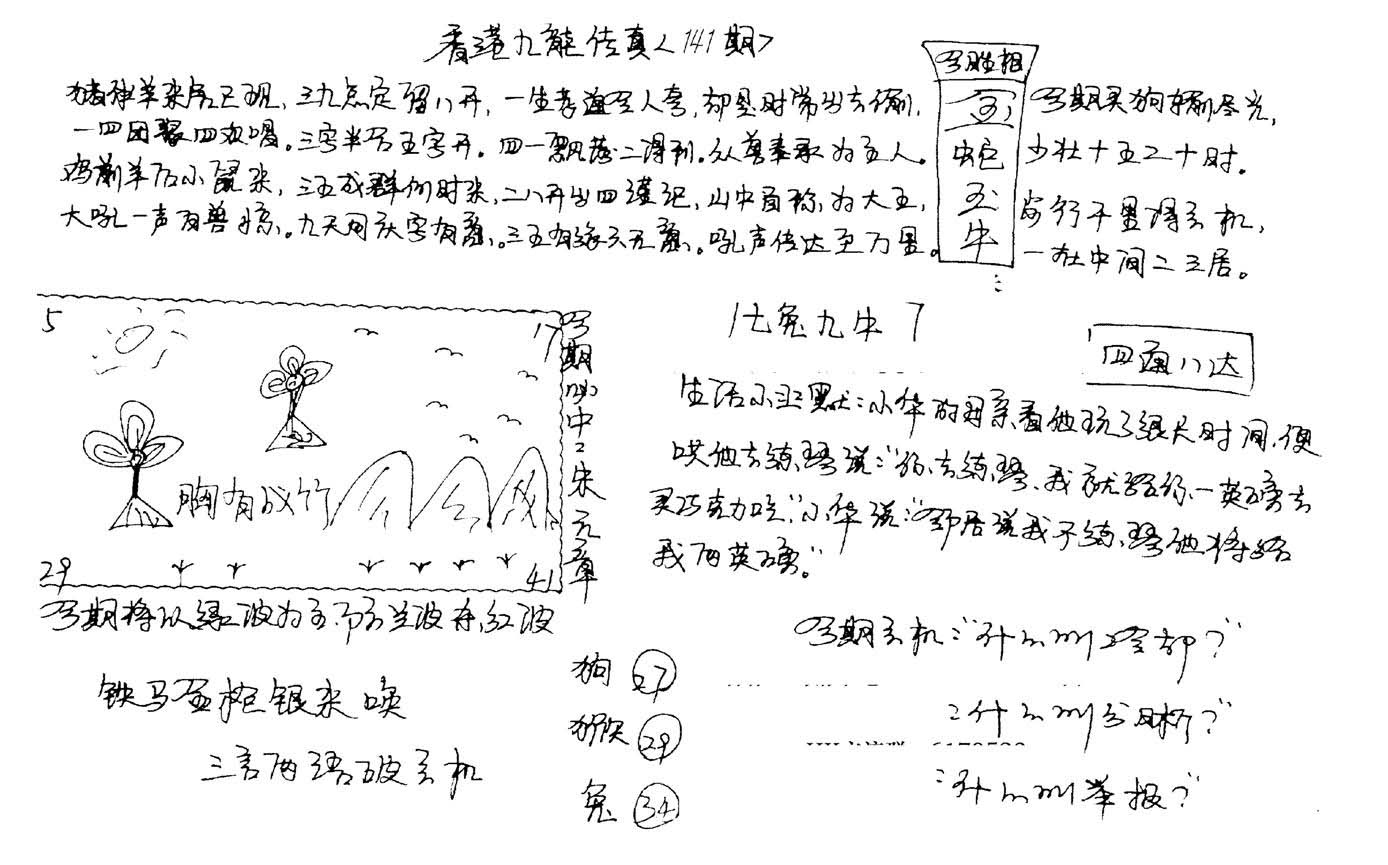 香港九龍传真<141期>
猪和羊来后已现,三九点定留八开,一生孝道至人夸,却是时常出去偷,
一四团聚四欢唱。三字半句五字开。四一飘落二得利。众兽奉承为主人。
鸡前羊后小鼠来,三五成群何时来,二八开出四谨记,山中自称为大王,
大吼一声百兽惊。九天用六字有意。三五有缘六无意。吼声传达至万里。
写胜相
蛇
玉
牛
今期买狗输尽光,
少壮十五二十时。
步行千里得玄机,
一在中间二三居。
5
17
胸有成竹
29
41
今期必中:朱元章
今期将以绿波为主 而兰波 红波
七兔九牛
四通八达
生活小幽默:小华的母亲看他玩了很长时间,便
哄他去练琴说:“你去练琴,我就给你一英磅去
买巧克力吃”小华说:“邻居说我不练琴他将给
我两英磅。”
今期玄机:“什么叫
:什么叫分析?”
:什么叫举报?”
铁马金枪银来唤
三言两语破玄机
狗 27
猴 29
兔 34